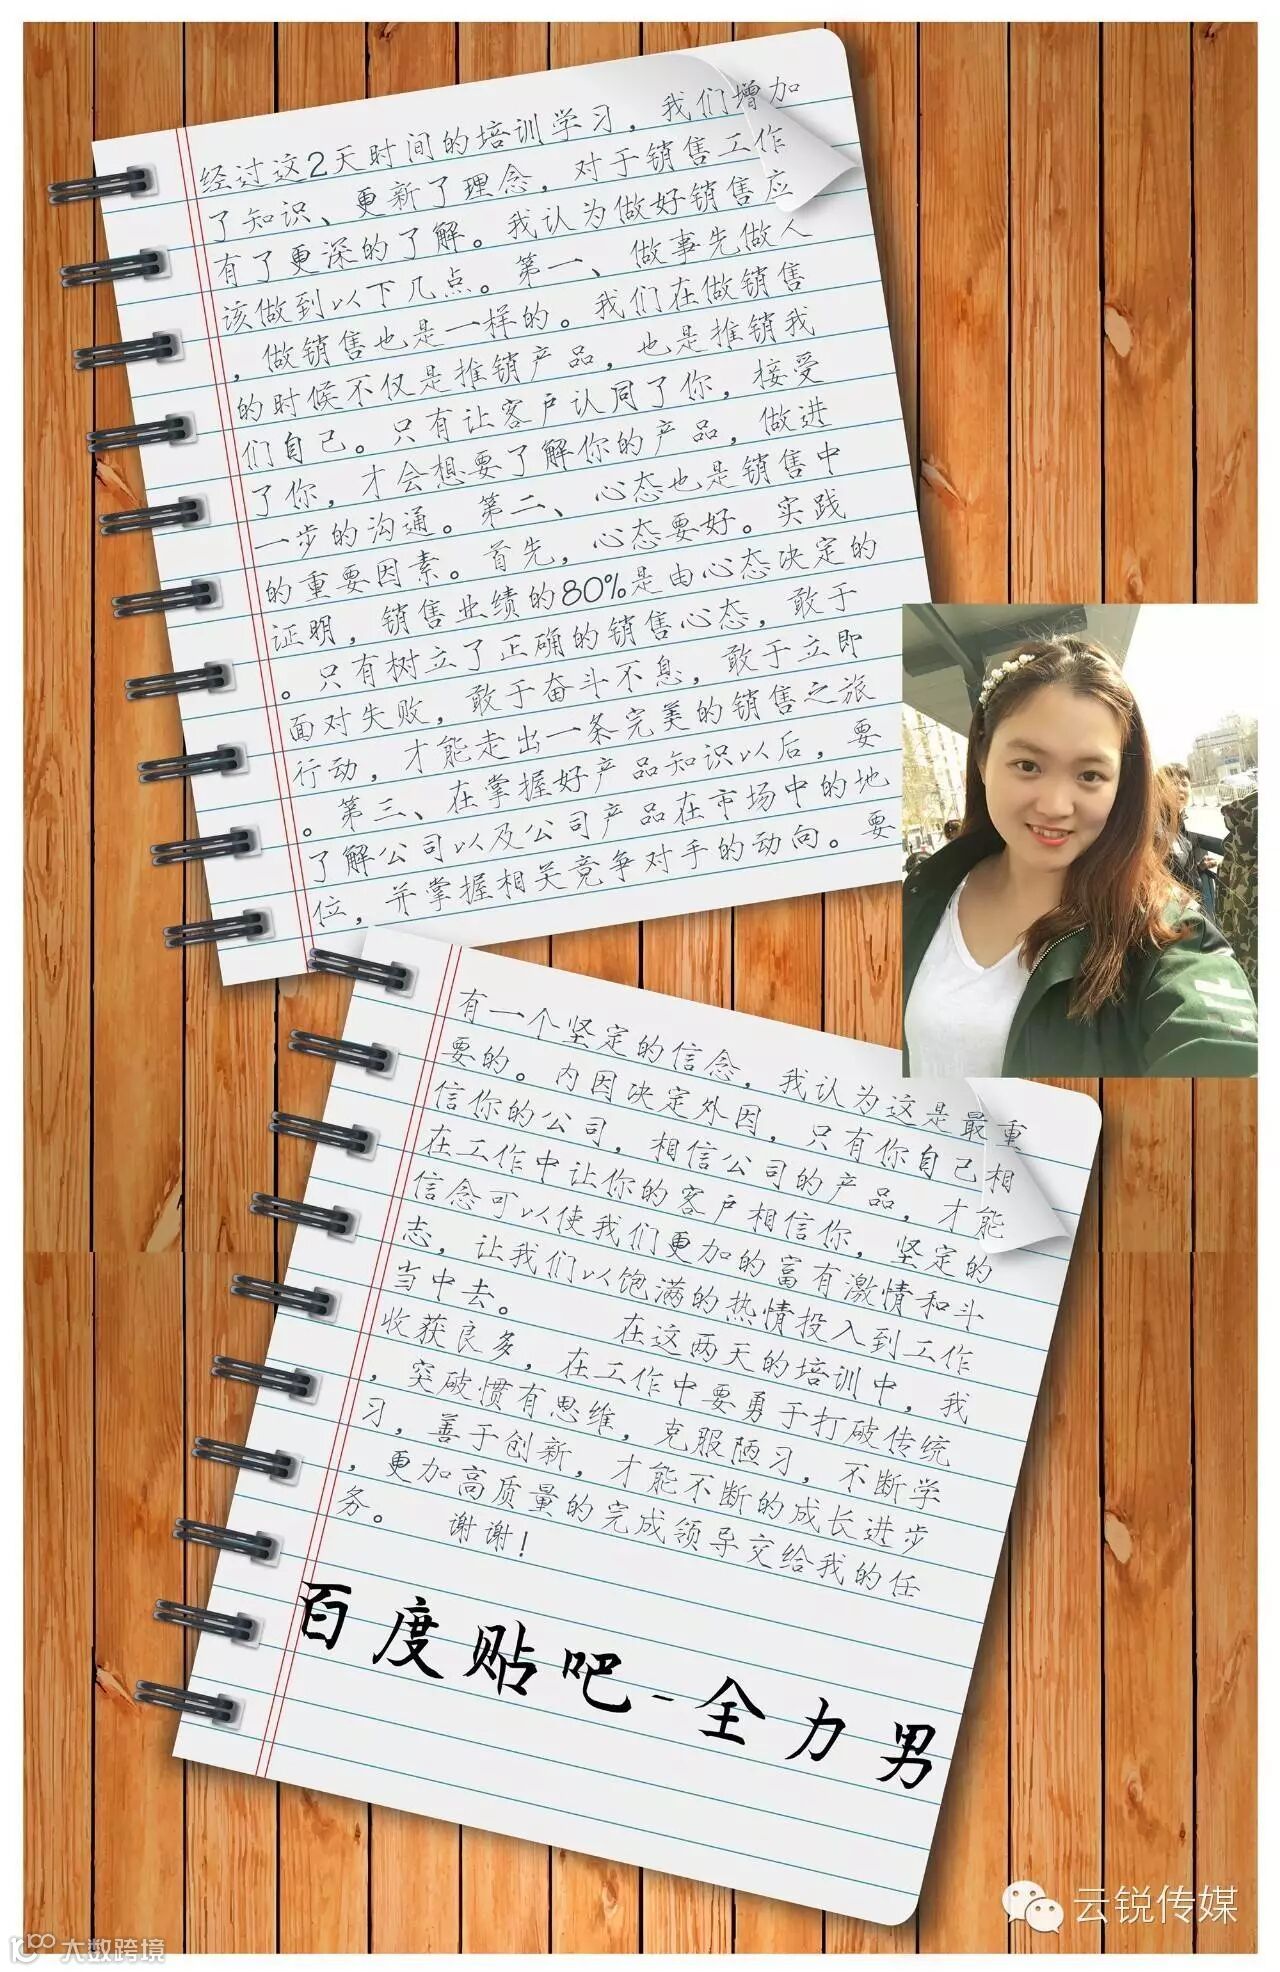 经过这2天时间的培训学习，我们增加
了知识、更新了理念，对于销售工作
有了更深的了解。我认为做好销售应
该做到以下几点。第一、做事先做人
，做销售也是一样的。我们在做销售
的时候不仅是推销产品，也是推销我
们自己。只有让客户认同了你，接受
了你，才会想要了解你的产品，做进
一步的沟通。第二、心态也是销售中
的重要因素。首先，心态要好。实践
证明，销售业绩的80%是由心态决定的
。只有树立了正确的销售心态，敢于
面对失败，敢于奋斗不息，敢于立即
行动，才能走出一条完美的销售之旅
。第三、在掌握好产品知识以后，要
了解公司以及公司产品在市场中的地
位，并掌握相关竞争对手的动向。要
有一个坚定的信念，我认为这是最重
要的。内因决定外因，只有你自己相
信你的公司，相信公司的产品，才能
在工作中让你的客户相信你，坚定的
信念可以使我们更加的富有激情和斗
志，让我们以饱满的热情投入到工作
当中去。 在这两天的培训中，我
收获良多，在工作中要勇于打破传统
，突破惯有思维，克服陋习，不断学
习，善于创新，才能不断的成长进步
，更加高质量的完成领导交给我的任
务。 谢谢！
百度贴吧-全力男
云锐传媒
大数跨境